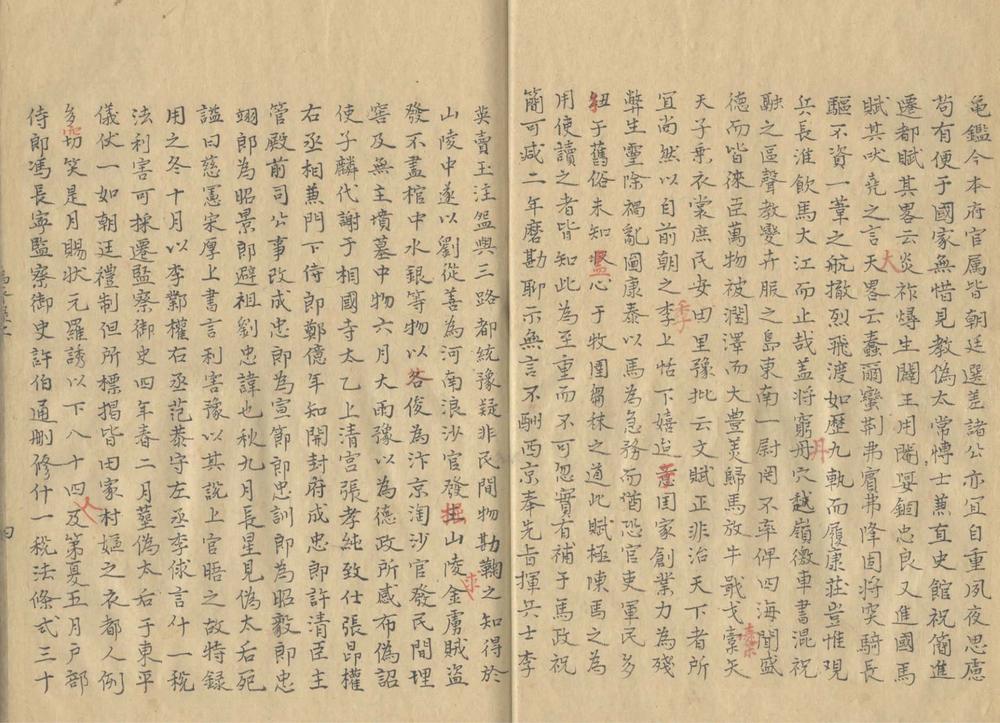 亀鑑今本府官属皆朝廷選差諸公亦宜自重夙夜思慮
苟有便于國家無惜見教偽太常博士蕪直史館祝簡進
遷都賦其畧云炎祚燼生閹王用闇寔錮忠良又進國馬
賦其吠堯之言大畧云蠢爾蠻荆弗賓弗降固將突騎長
驅不資一葦之航撤烈飛渡如歷九軌而履康莊豈惟覌
兵長淮飲馬大江而止哉蓋將窮丹穴越嶺徼車書混祝
融之區聲教變卉服之島東南一尉罔不率俾四海聞盛
德而皆徠臣萬物被潤澤而大豊美歸馬放牛戢戈橐矢
天子垂衣裳庶民安田里豫批云文賦正非治天下者所
宜尚然以自前朝之季上恬下嬉迨國家創業力為殘
弊生靈除禍亂圖康泰以馬為急務而猶恐官吏軍民多
紐于舊俗未知盡心于牧圉芻秣之道此賦極陳馬之為
用使讀之者皆知此為至重而不可忽實有補于馬政祝
簡可减二年磨勘聊示無言不酬西京奉先旨揮兵士李
英賣玉注盌與三路都統豫疑非民間物勘鞠之知得於
山陵中遂以劉從善為河南浪沙官發掘山陵金虜賊盜
發不盡棺中水銀等物以谷俊為汴京淘沙官發民間埋
窖及無主墳墓中物六月大雨豫以為德政所感布偽詔
使子麟代謝于相國寺太乙上清宫張孝純致仕張昂權
右丞相蕪門下侍郎鄭億年知開封府成忠郎許清臣主
管殿前司公事改成忠郎為宣節郎忠訓郎為昭毅郎忠
翊郎為昭景郎避祖劉忠諱也秋九月長星見偽太后死
謚曰慈憲宋厚上書言利害豫以其說上官晤之故特録
用之冬十月以李鄴權右丞范恭守左丞李俅言什一税
法利害可採遷監察御史四年春二月塟偽太后于東平
儀仗一如朝廷禮制但所標揭皆田家村嫗之衣都人例
多窃笑是月賜状元羅誘以下八十四人及第夏五月戸部
侍郎馮長寧監察御史許伯通刪修什一税法條式三十
四